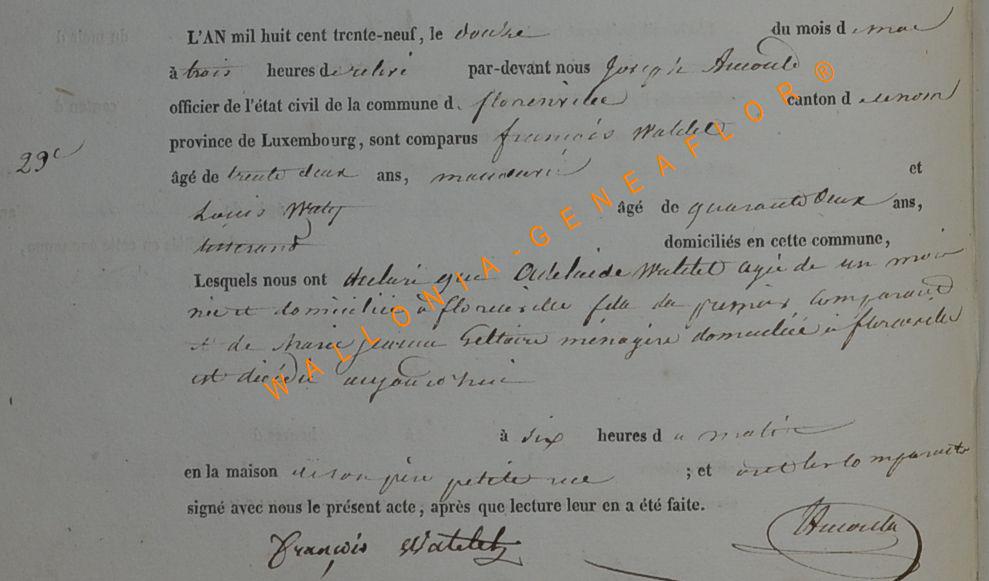 L'AN mil huit cent trente-neuf, le douze du mois de mai
à trois heures de relevé par-devant nous Joseph Arnould
officier de l'état civil de la commune de florenville canton de
province de Luxembourg, sont comparus françois Watelet
29e
âgé de trente deux ans, et
Louis âgé de quarante deux ans,
tisserand domiciliés en cette commune,
Lesquels nous ont déclaré que Adelaide Watelet agée de un mois
née et domiciliée à florenville fille du premier comparant
et de Marie Jeanne ménagère domiciliée à florenville
est décédée aujourd'hui
à six heures du matin
en la maison de son père petite rue ; et ont les comparants
signé avec nous le présent acte, après que lecture leur en a été faite.
François Watelet Arnould
WALLONIA-GENEAFLOR®